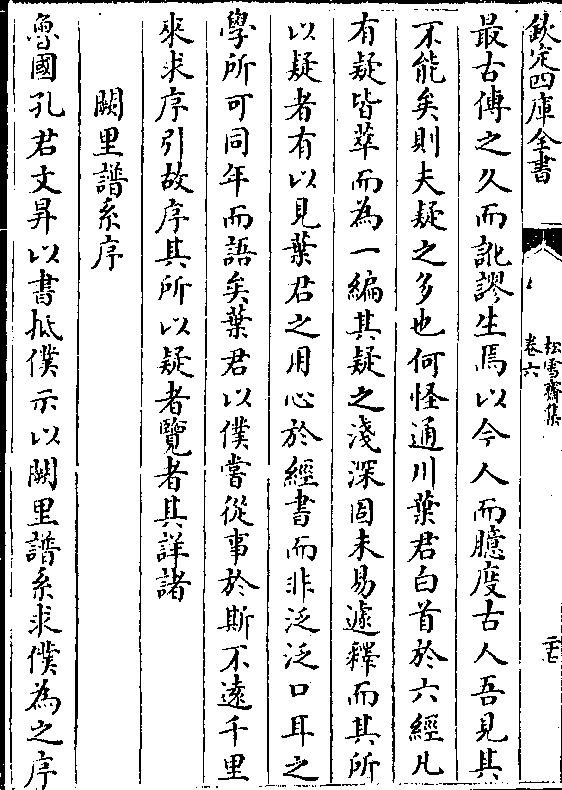 欽定四庫全書
松雪齋集
卷六
最古傳之久而訛謬生焉以今人而臆度古人吾見其
不能矣則夫疑之多也何怪通川葉君白首於六經凡
有疑皆萃而為一編其疑之淺深固未易遽釋而其所
以疑者有以見葉君之用心於經書而非泛泛口耳之
學所可同年而語矣葉君以僕嘗從事於斯不遠千里
來求序引故序其所以疑者覽者其詳諸
闕里譜系序
魯國孔君文昇以書抵僕示以闕里譜系求僕為之序